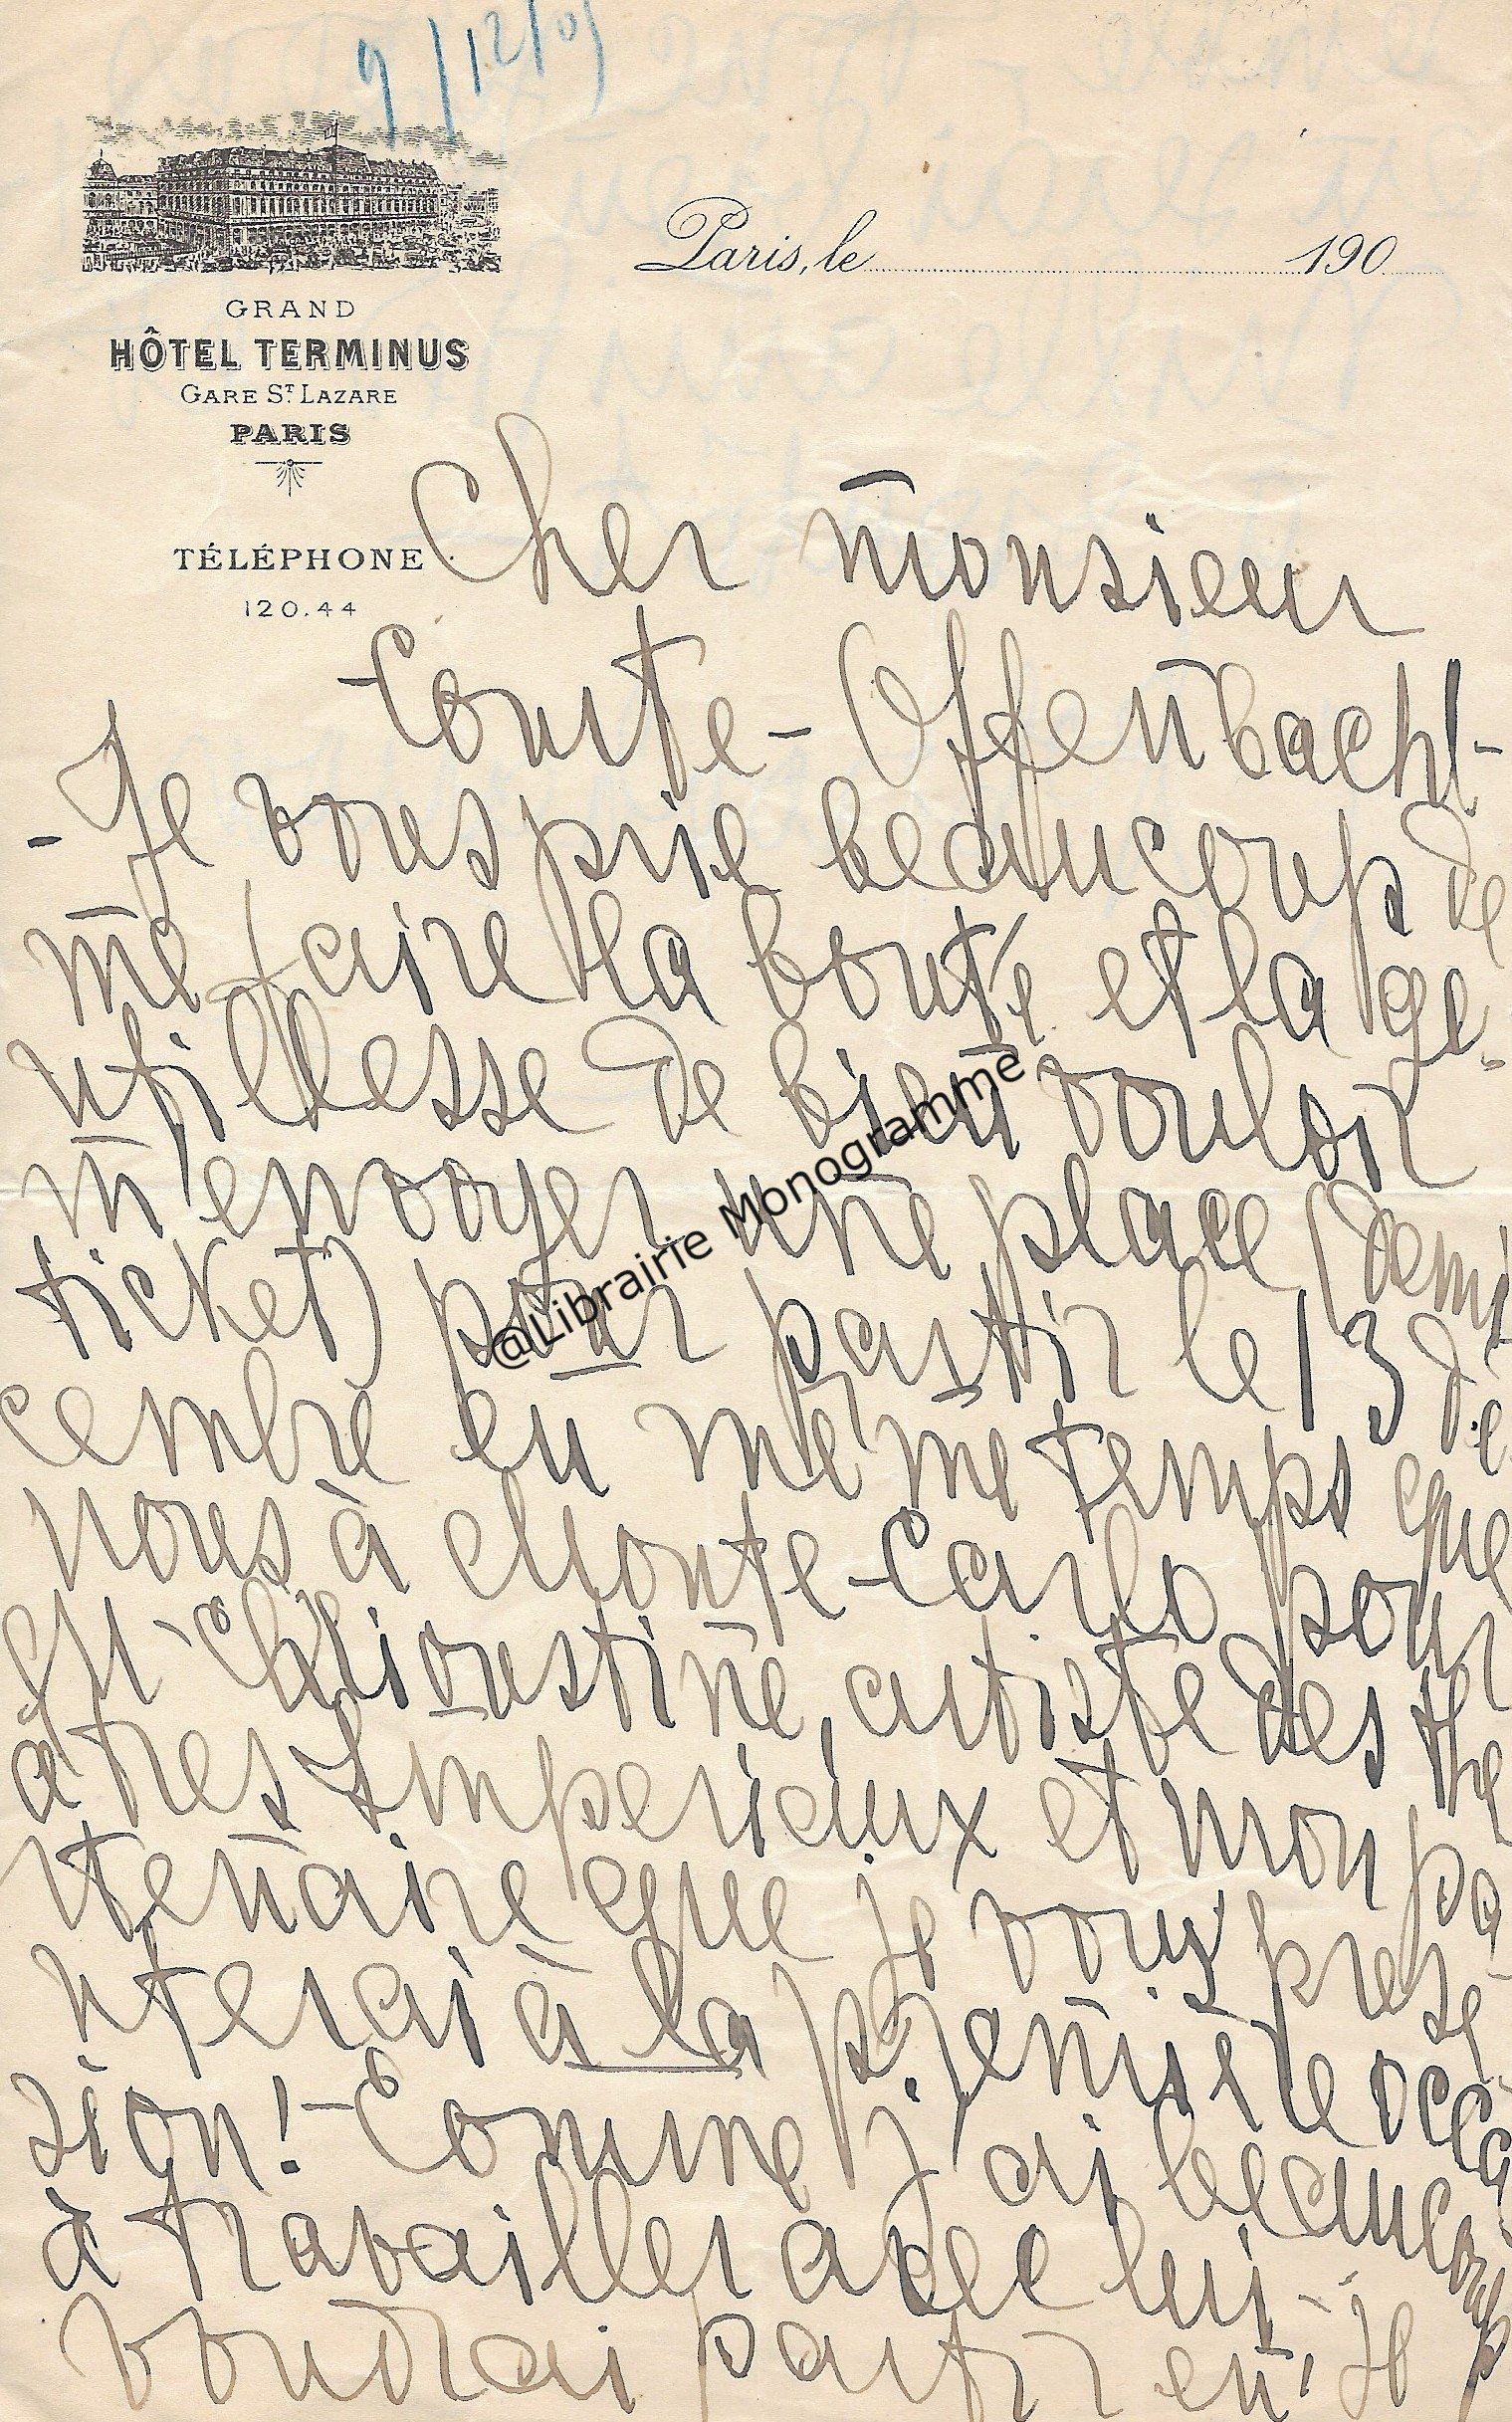 9/12/01
Paris, le 190
GRAND
HÔTEL TERMINUS
GARE ST. LAZARE
PARIS
TÉLÉPHONE
120.44
Cher monsieur
Comte-Offenbach!-
-Je vous prie beaucoup de
me faire la bonté et la ge-
ntillesse de bien vouloir
m'envoyer une place (demi
ticket) pour partir le 13 dé
cembre en même temps que
nous à Monte-Carlo pour
artiste des thé
atres Imperiaux et mon pa
rtenaire que je vous prese-
nterai à la première occa
sion!-Comme j'ai beaucoup
à travailler avec lui-je
voudrai partir en! je
@Librairie Monogramme